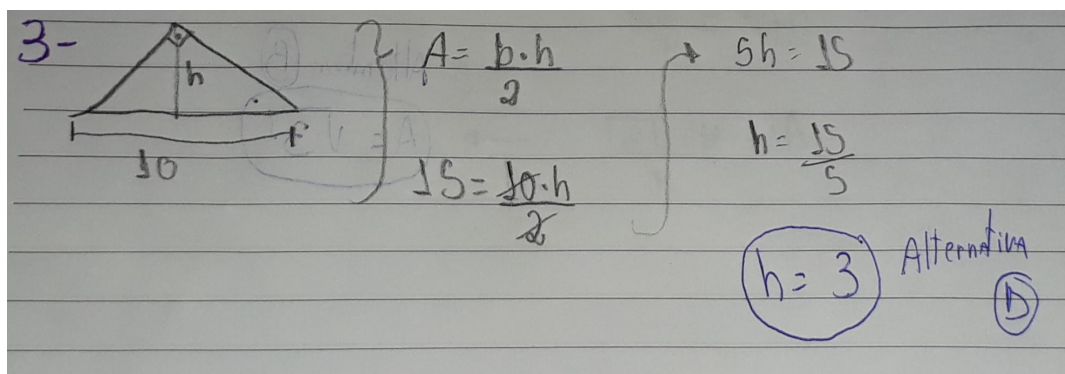 3-
h
10
A = b.h
2
15 = 10.h
2
5h = 15
h = 15
5
h = 3
Alternativa
D